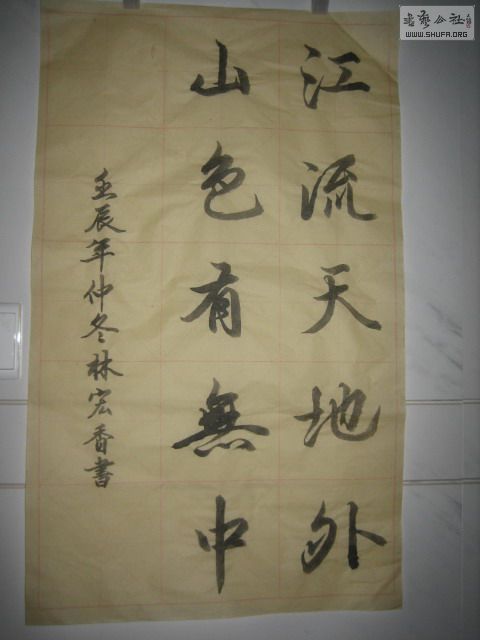 江流天地外
山色有無中
壬辰年仲冬林宏香書
書艺公社
WWW.SHUFA.ORG